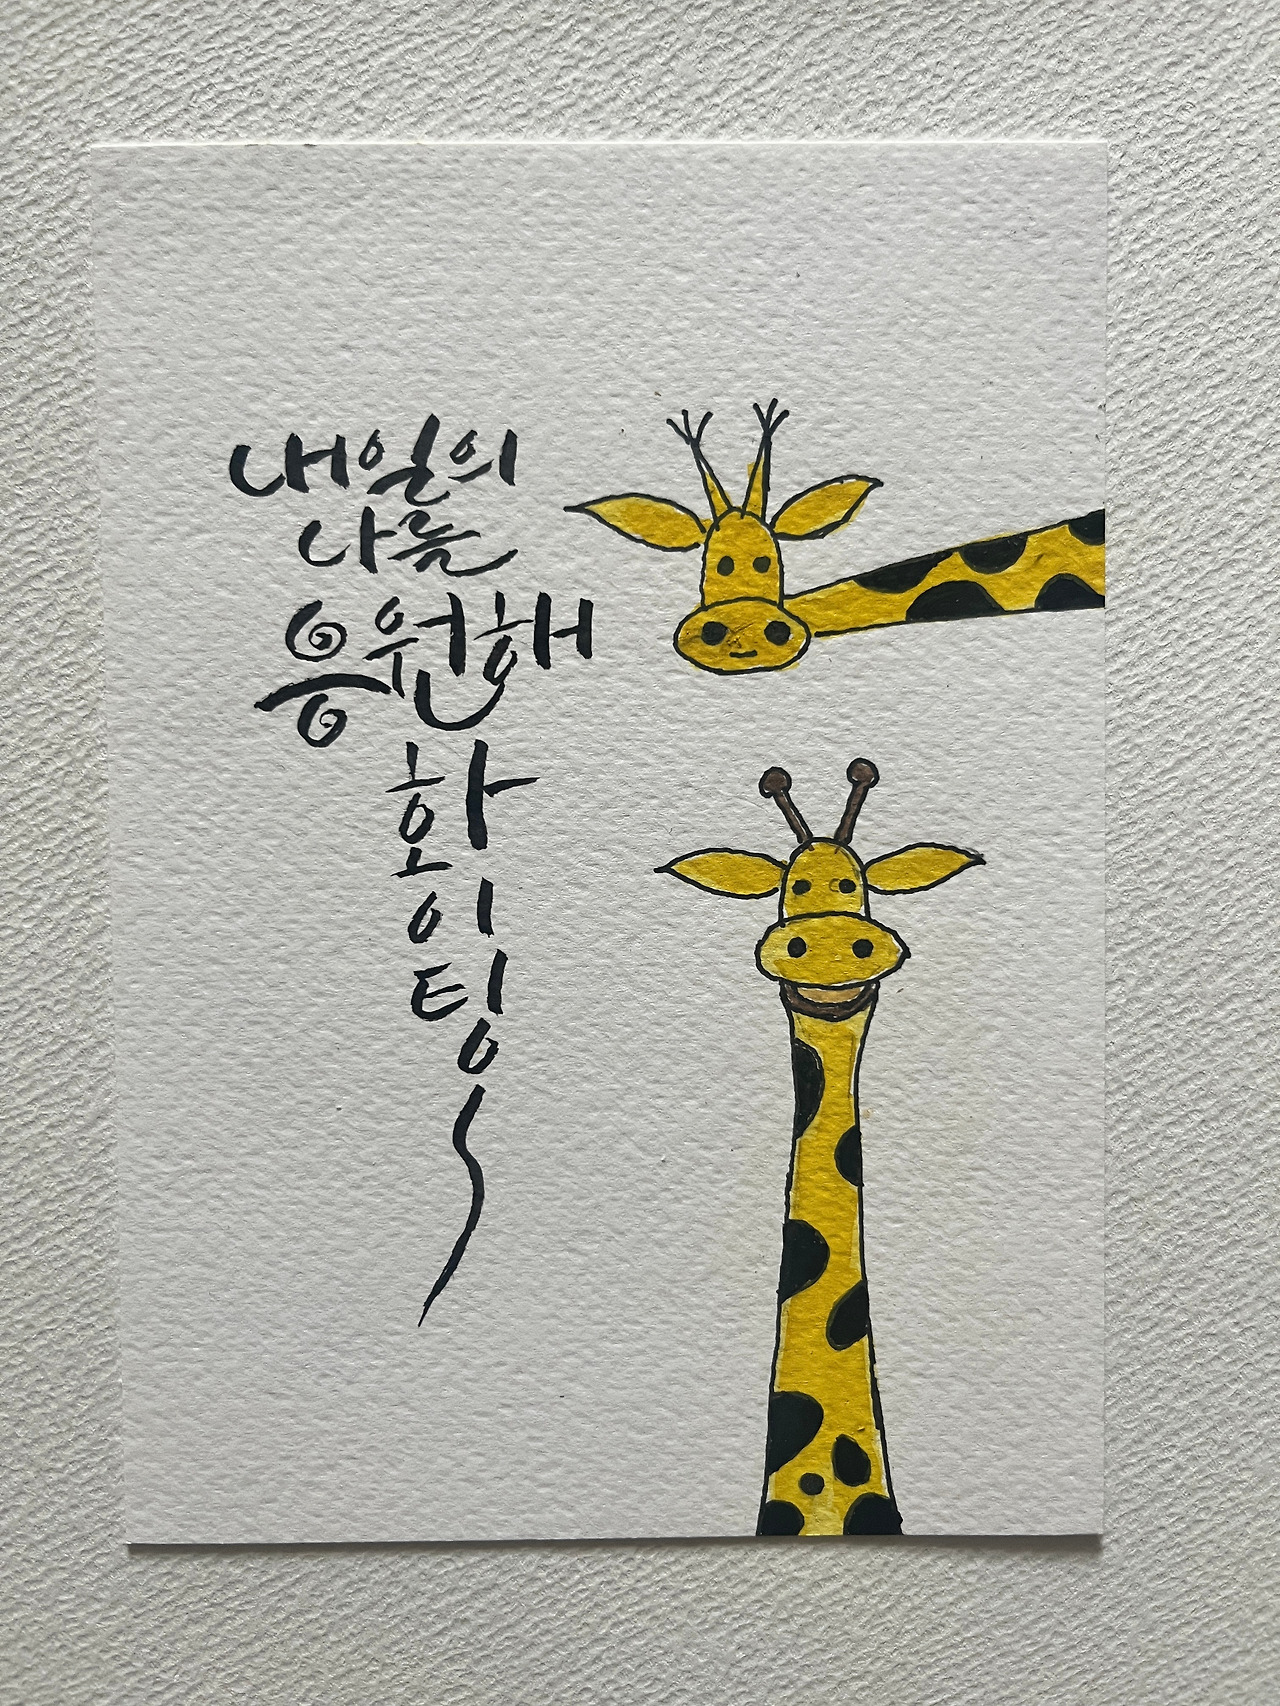 내일의
나를
응원해
화
이
팅